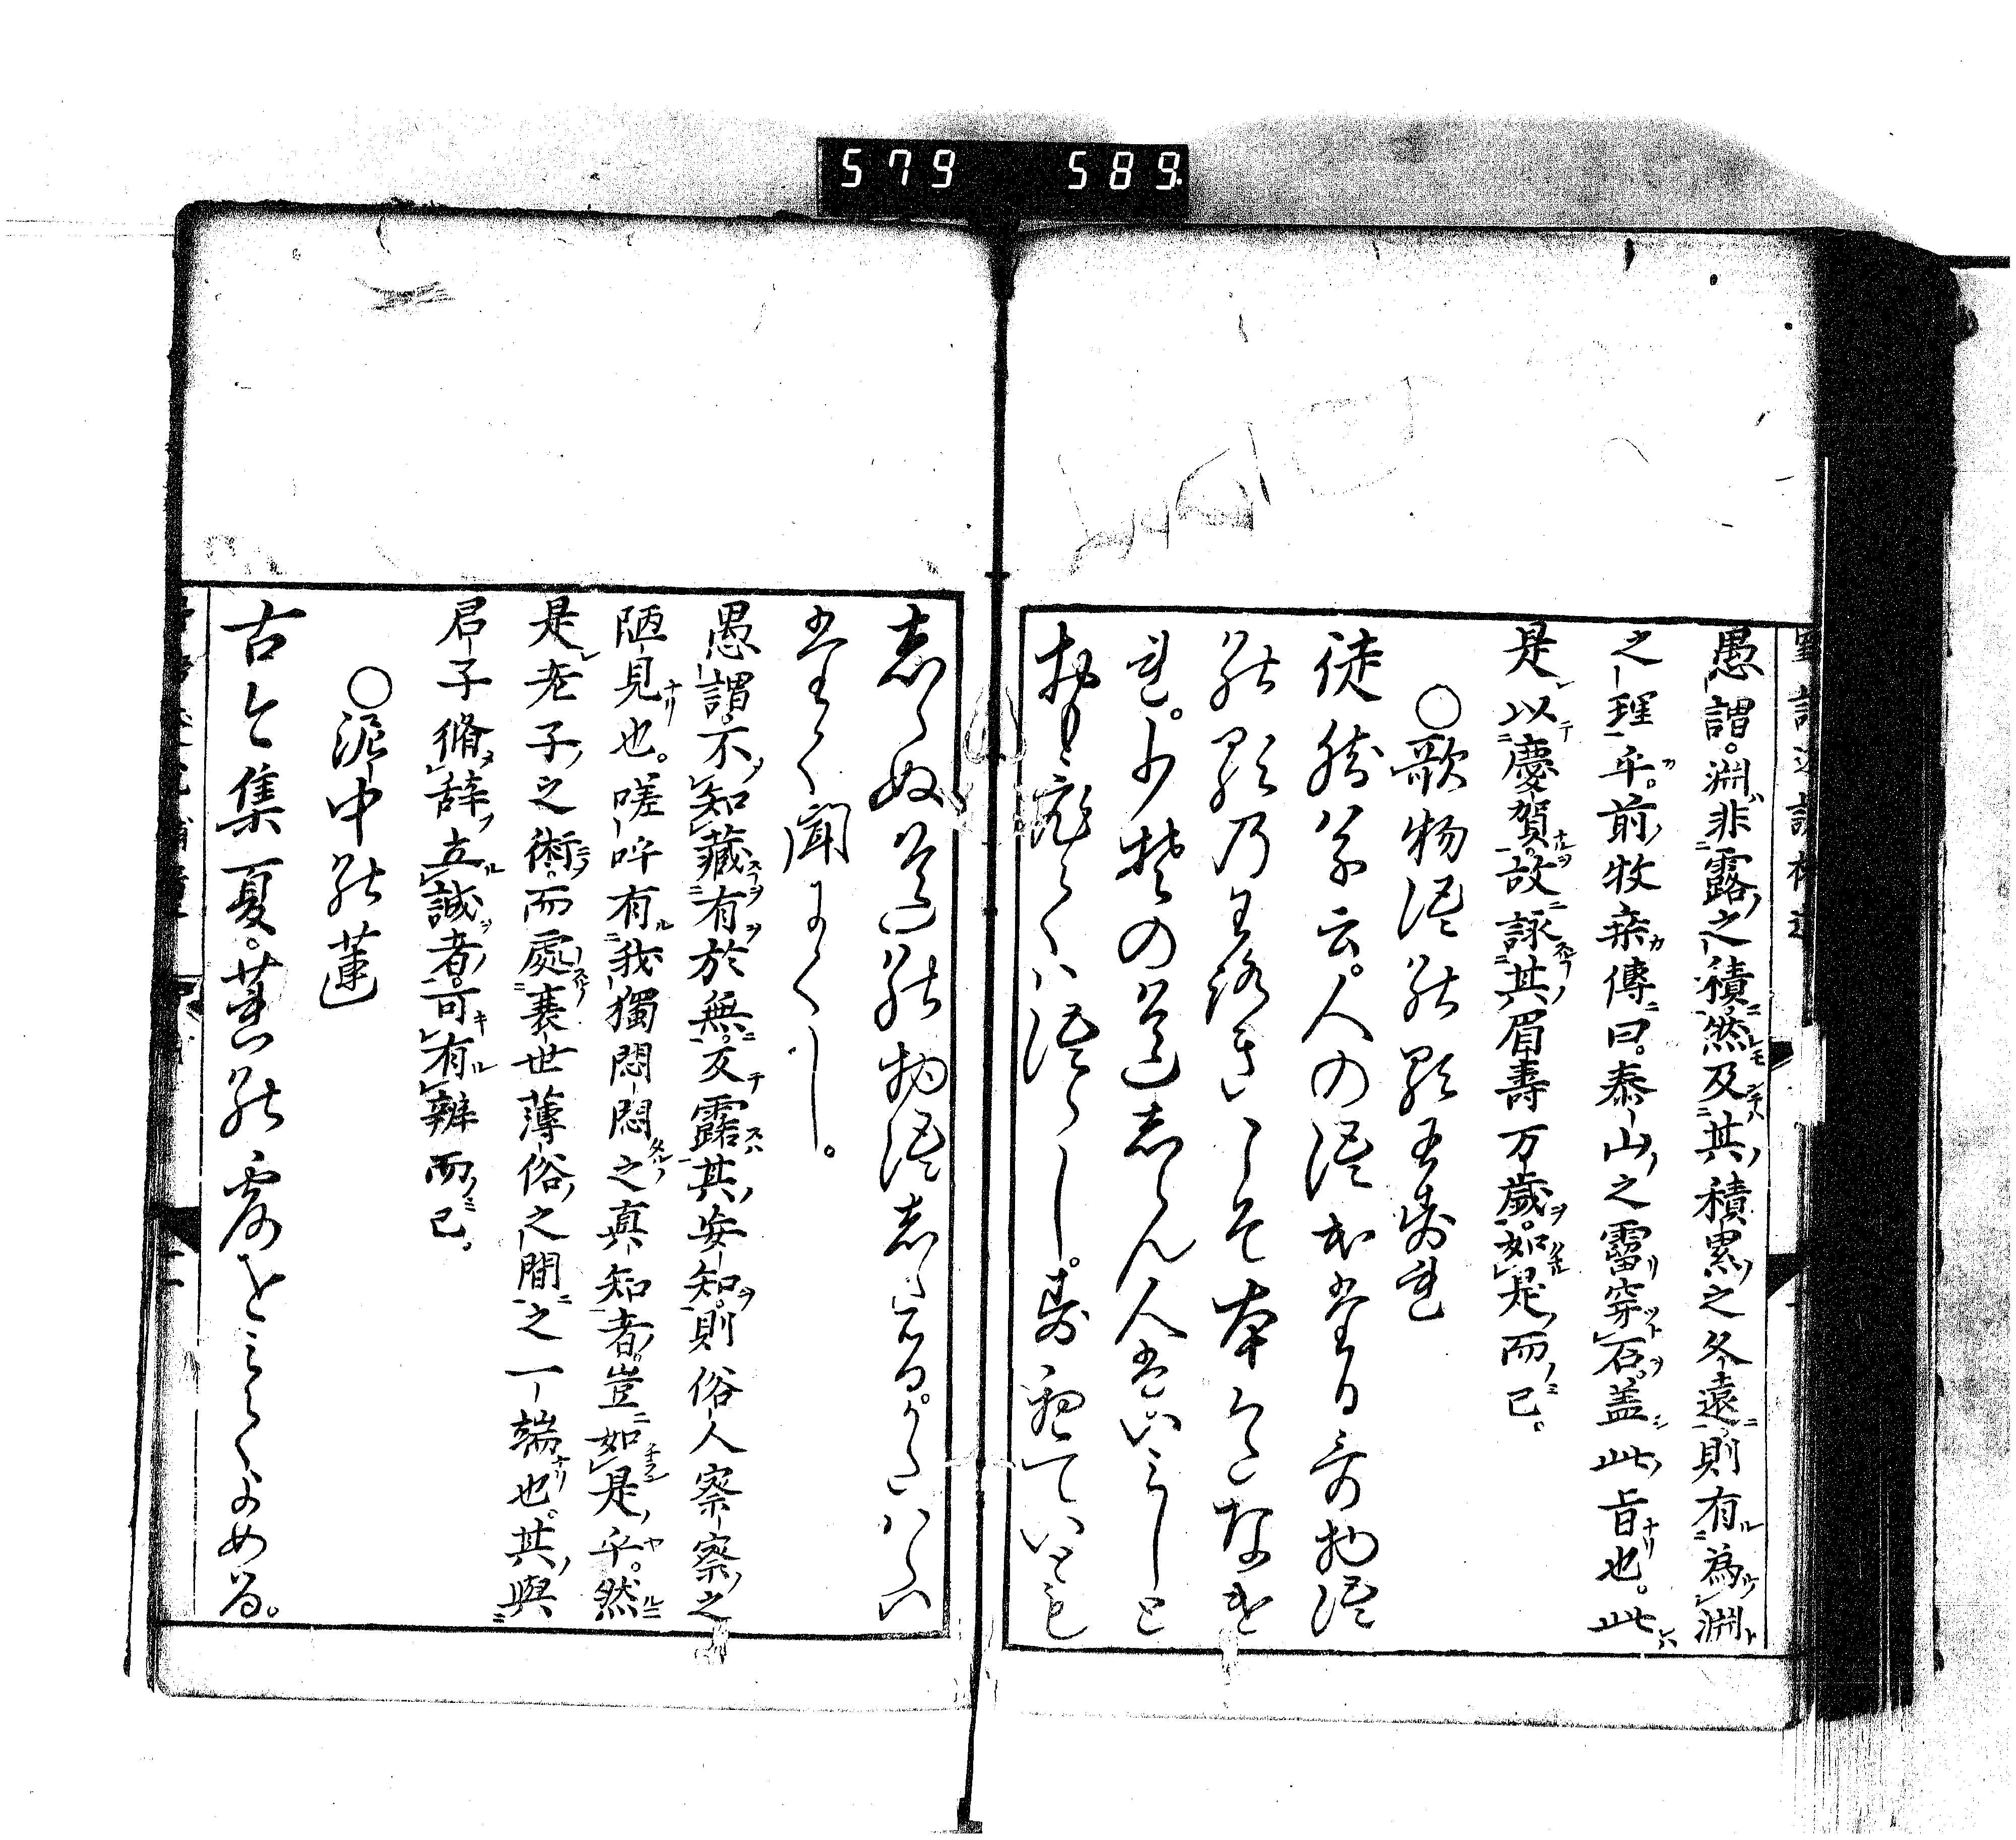 愚謂。淵非露之積。然及其積累之久遠則有為淵
之理乎。前牧乗傳曰。泰山之霤穿石。盖此旨也。此
是以慶賀。故詠其眉壽万歲。如是而已。
○歌物語能歌
徒然草云。人の語出たる哥物語
能歌乃わろきこそ本いなけ
れ。少その道しらん人はいみしと
おもひては語らし。すへていとも
しらぬ道能物語したる。かたはらい
たく聞にくし。
愚謂。不知藏有於無。反露其妄知。則俗人察察之
陋見也。嗟吁有我獨悶悶之真知者。豈如是乎。然
是老子之術。而處衰世薄俗之間之一端也。其與
君子脩辞立誠者。可有辨而已。
○泥中能蓮
古今集夏。蓮能露をみてよめる。
579 589